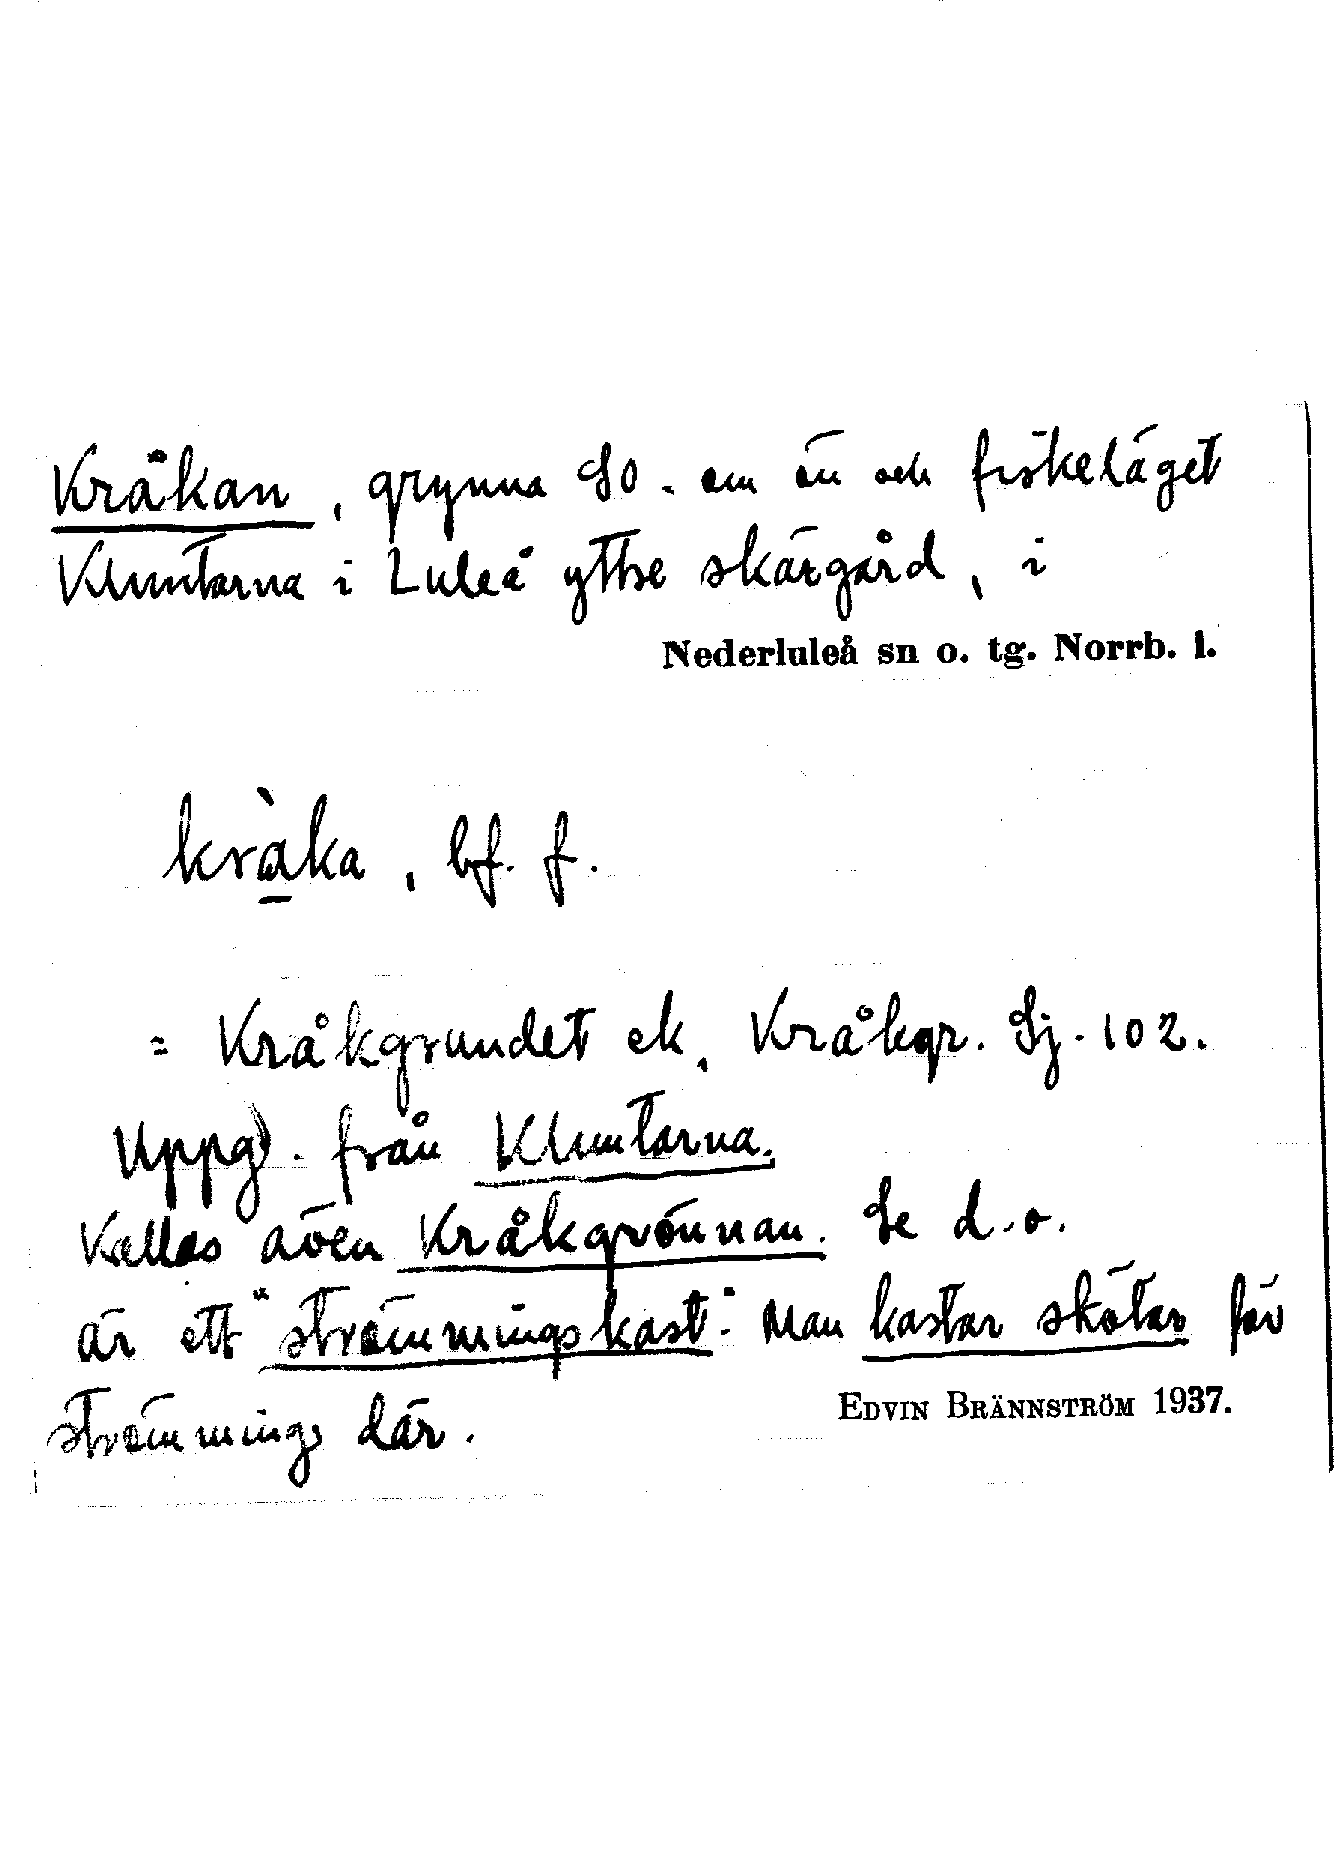 Kråkan, grynna SO. om ön och fiskeläget
Kluntarna i Luleå yttre skärgård, i
Nederluleå sn o. tg. Norrb. l.
kràka, bf. f.
= Kråkgrundet ek, Kråkgr. Sj. 102.
Uppg. från Kluntarna.
Kallas även Kråkgrönnan. Se d.o.
är ett "strömmingskast". Man kastar skötar för
strömming där.
EDVIN BRÄNNSTRÖM 1937.